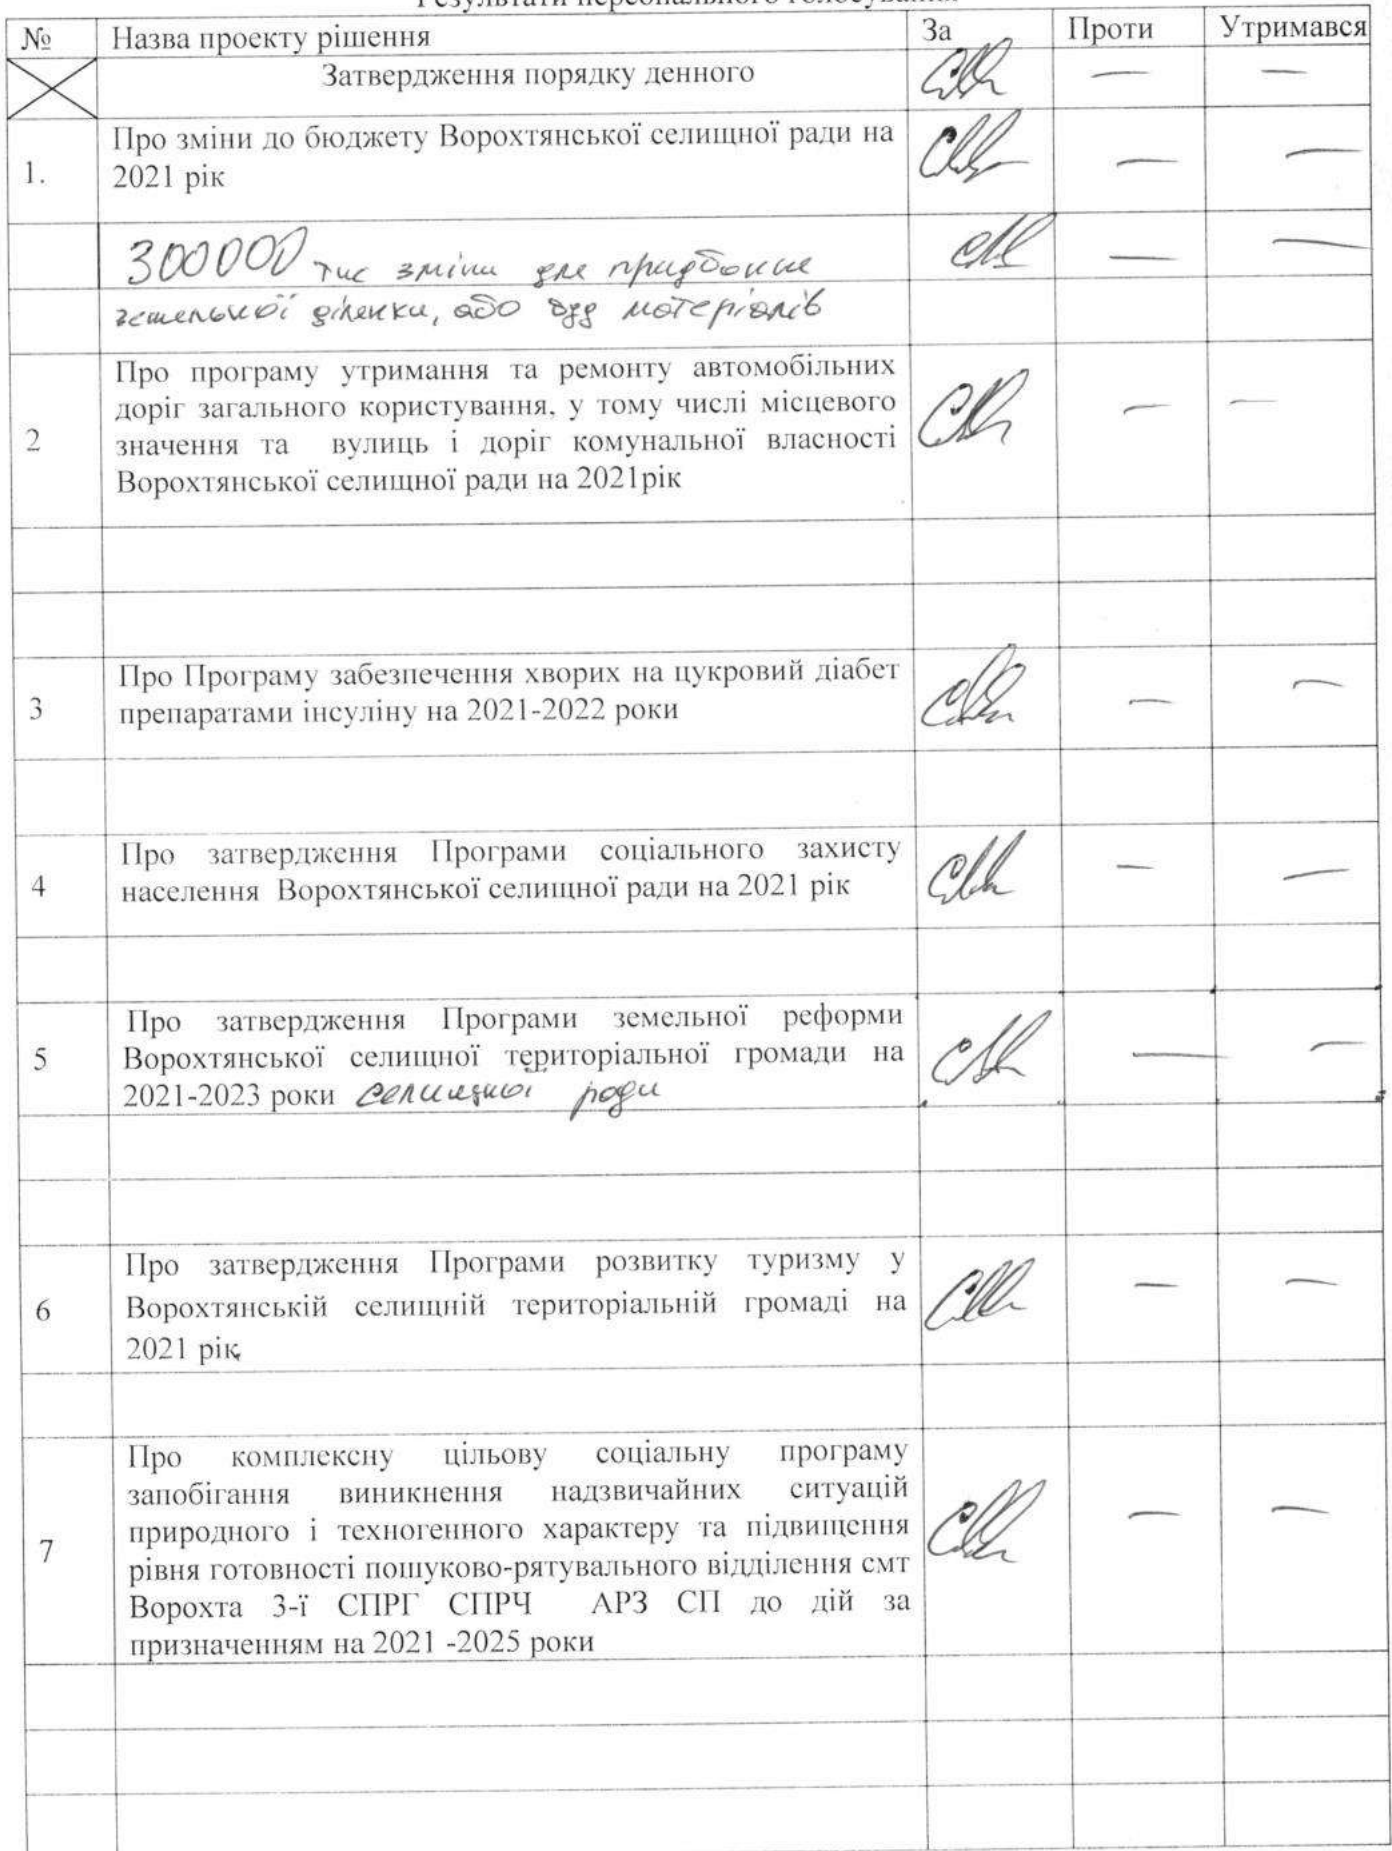 Результати персонального голосування
№ Назва проекту рішення За Проти Утримався
Затвердження порядку денного — —
Про зміни до бюджету Ворохтянської селищної ради на
1. 2021 рік — —
300000 тис зміни для придбання — —
земельної ділянки, або буд матеріалів
Про програму утримання та ремонту автомобільних
доріг загального користування, у тому числі місцевого — —
2 значення та вулиць і доріг комунальної власності
Ворохтянської селищної ради на 2021рік
Про Програму забезпечення хворих на цукровий діабет
3 препаратами інсуліну на 2021-2022 роки — —
Про затвердження Програми соціального захисту
4 населення Ворохтянської селищної ради на 2021 рік — —
Про затвердження Програми земельної реформи
5 Ворохтянської селищної територіальної громади на — —
2021-2023 роки селищної ради
Про затвердження Програми розвитку туризму у
6 Ворохтянській селищній територіальній громаді на — —
2021 рік
Про комплексну цільову соціальну програму
запобігання виникнення надзвичайних ситуацій
природного і техногенного характеру та підвищення — —
7 рівня готовності пошуково-рятувального відділення смт
Ворохта 3-ї СПРГ СПРЧ АРЗ СП до дій за
призначенням на 2021 -2025 роки